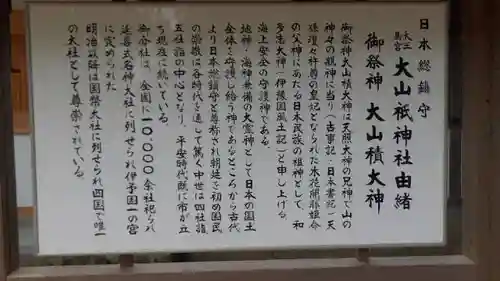 日本総鎮守
大三島宮 大山祇神社由緒
御祭神 大山積大神
御祭神大山積大神は天照大神の兄神で山の
神々の親神に当り(古事記・日本書紀)天
孫瓊々杵尊の皇妃となられた木花開耶姫命
の父神にあたる日本民族の祖神として、和
多志大神(伊豫国風土記)と申し上げる。
海上安全の守護神である。
地神・海神兼備の大霊神として日本の国土
全体を守護し給う神であるところから古代
より日本総鎮守と尊称され朝廷を初め国民
の崇敬は各時代を通して篤く中世は四社詣
五社詣の中心となり、平安時代既に市が立
ち現在に続いている。
御分社は、全国に一〇、〇〇〇余社祀られ
延喜式名神大社に列せられ伊予国一の宮
に定められた
明治以降は国幣大社に列せられ四国で唯一
の大社として尊崇されている。